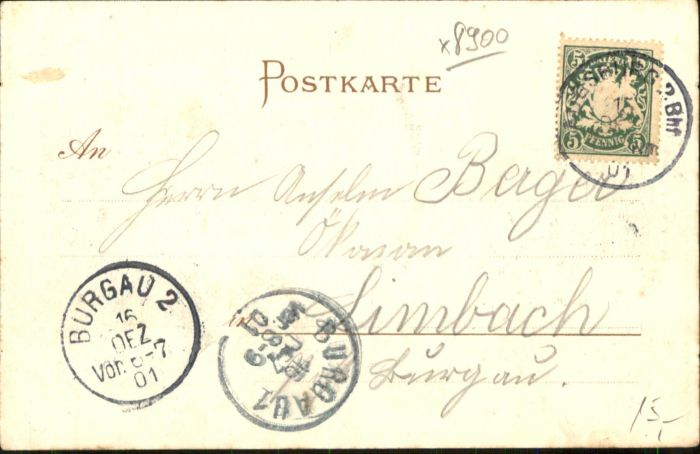 x8900
POSTKARTE
BAYERN
5 5
PFENNIG
2.Bhf
15
01
An
Herrn Anselm Berger
Ökonom
in Limbach
Burgau.
BURGAU 2
16
DEZ
Vor. 6-7
01
BURGAU 2
15,-